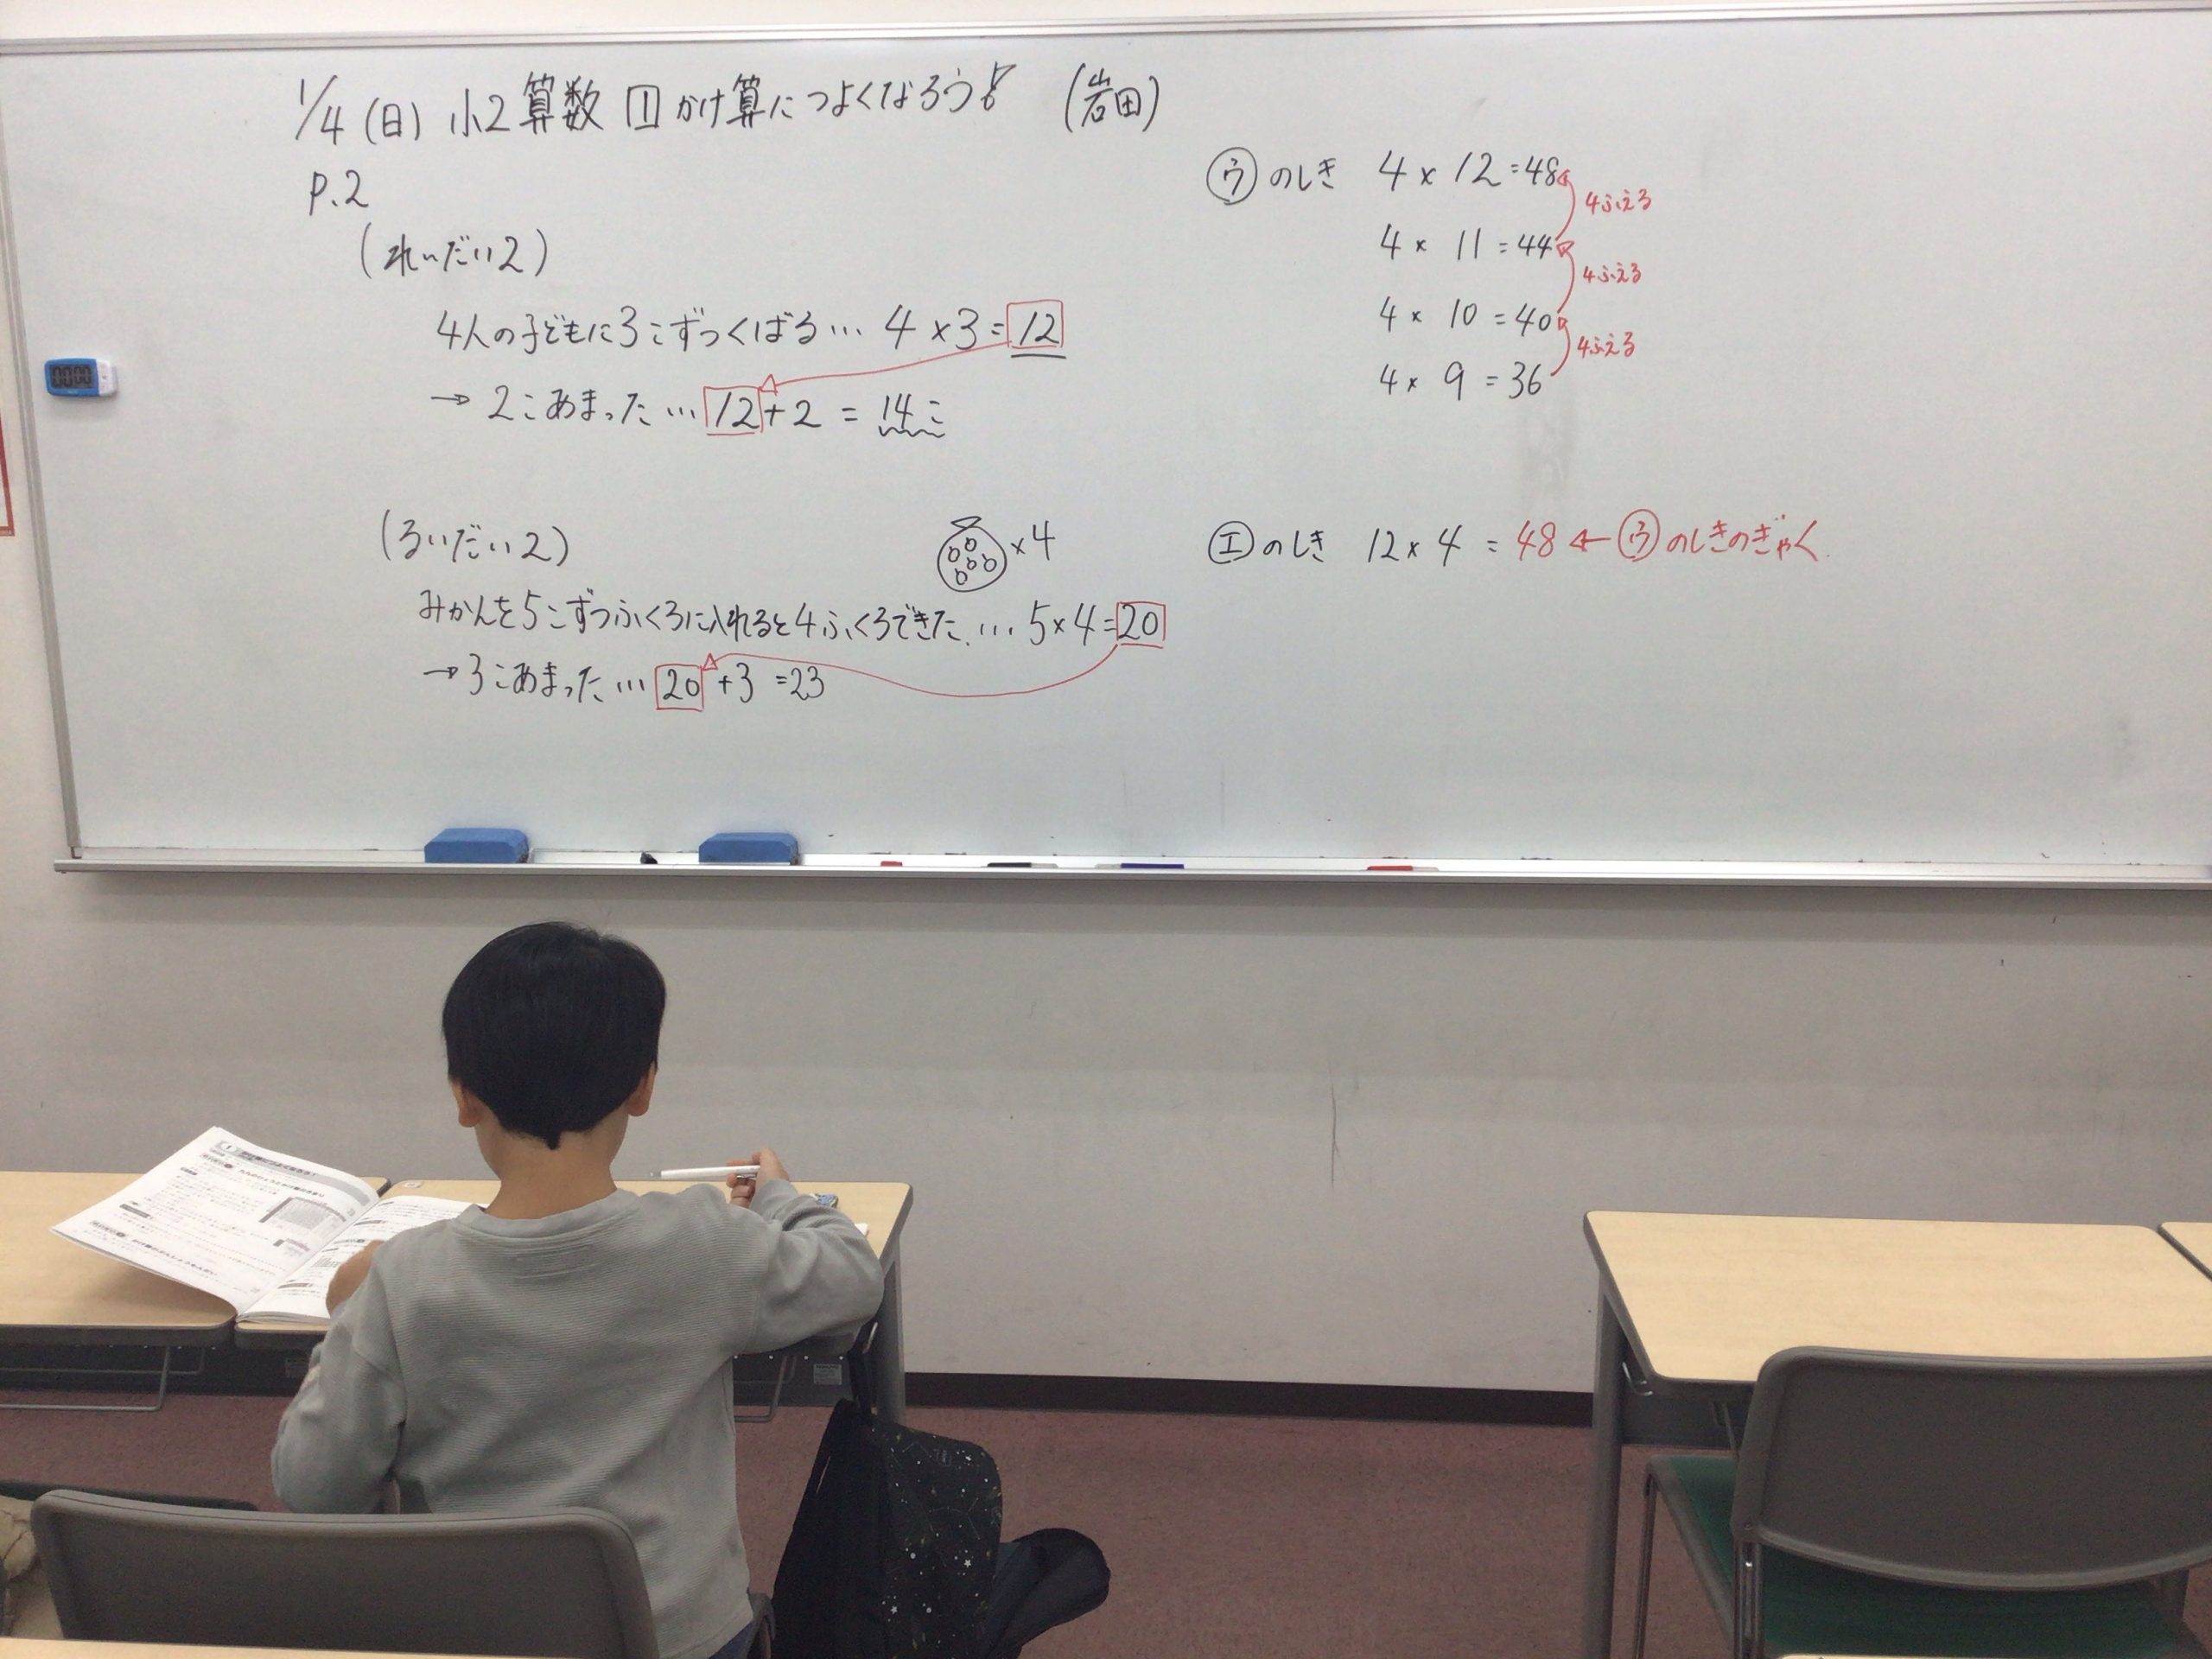 1/4(日) 小2算数 1 かけ算につよくなろう! (岩田)
P.2
(れいだい2)
4人の子どもに3こずつくばる… 4×3=12
→2こあまった…12+2=14こ
(るいだい2)
×4
みかんを5こずつふくろに入れると4ふくろできた…5×4=20
→3こあまった…20+3=23
ウのしき 4×12=48
4ふえる
4×11=44
4ふえる
4×10=40
4ふえる
4×9=36
エのしき 12×4=48←ウのしきのぎゃく